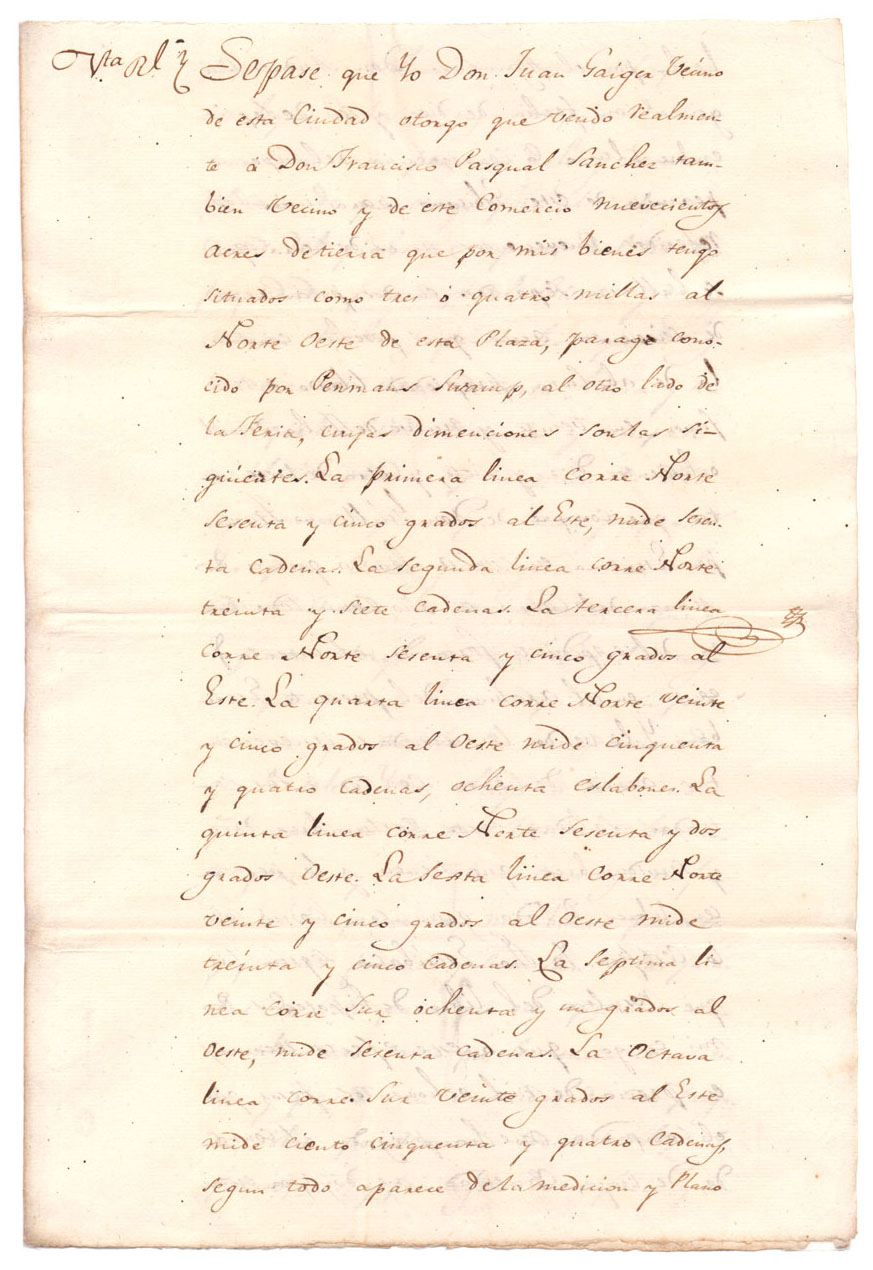 Vta Rl
Sepase que Yo Don Juan Gaiger Vecino
de esta Ciudad otorgo que vendo realmen-
te á Don Francisco Pasqual Sanchez tam-
bien Vecino y de este Comercio nuevecientos
acres de tierra que por mis bienes tengo
situados como tres ó quatro millas al
Norte Oeste de esta Plaza, parage cono-
cido por Penmans Swamp, al otro lado de
la Feria, cuyas dimenciones son las si-
güientes. La primera linea corre Norte
sesenta y cinco grados al Este, mide sesen-
ta cadenas. La segunda linea corre Norte
treinta y siete cadenas. La tercera linea
corre Norte sesenta y cinco grados al
Este. La quarta linea corre Norte veinte
y cinco grados al Oeste mide cinquenta
y quatro cadenas, ochenta eslabones. La
quinta linea corre Norte sesenta y dos
grados Oeste. La sexta linea corre Norte
veinte y cinco grados al Oeste mide
treinta y cinco cadenas. La septima li-
nea corre Sur ochenta y un grados al
Oeste, mide sesenta cadenas. La Octava
linea corre Sur veinte grados al Este
mide ciento cinquenta y quatro cadenas,
segun todo aparece de la medicion y Plano